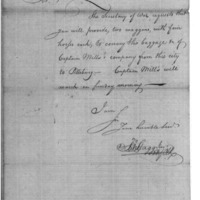 The Secretary of War requests that
you will provide two waggons, with four
horses each, to convey the baggage &c of
Captain Mills's company from this city
to Pittsburg. Captain Mills will
march on Sunday morning.
I am
Your humble Serv